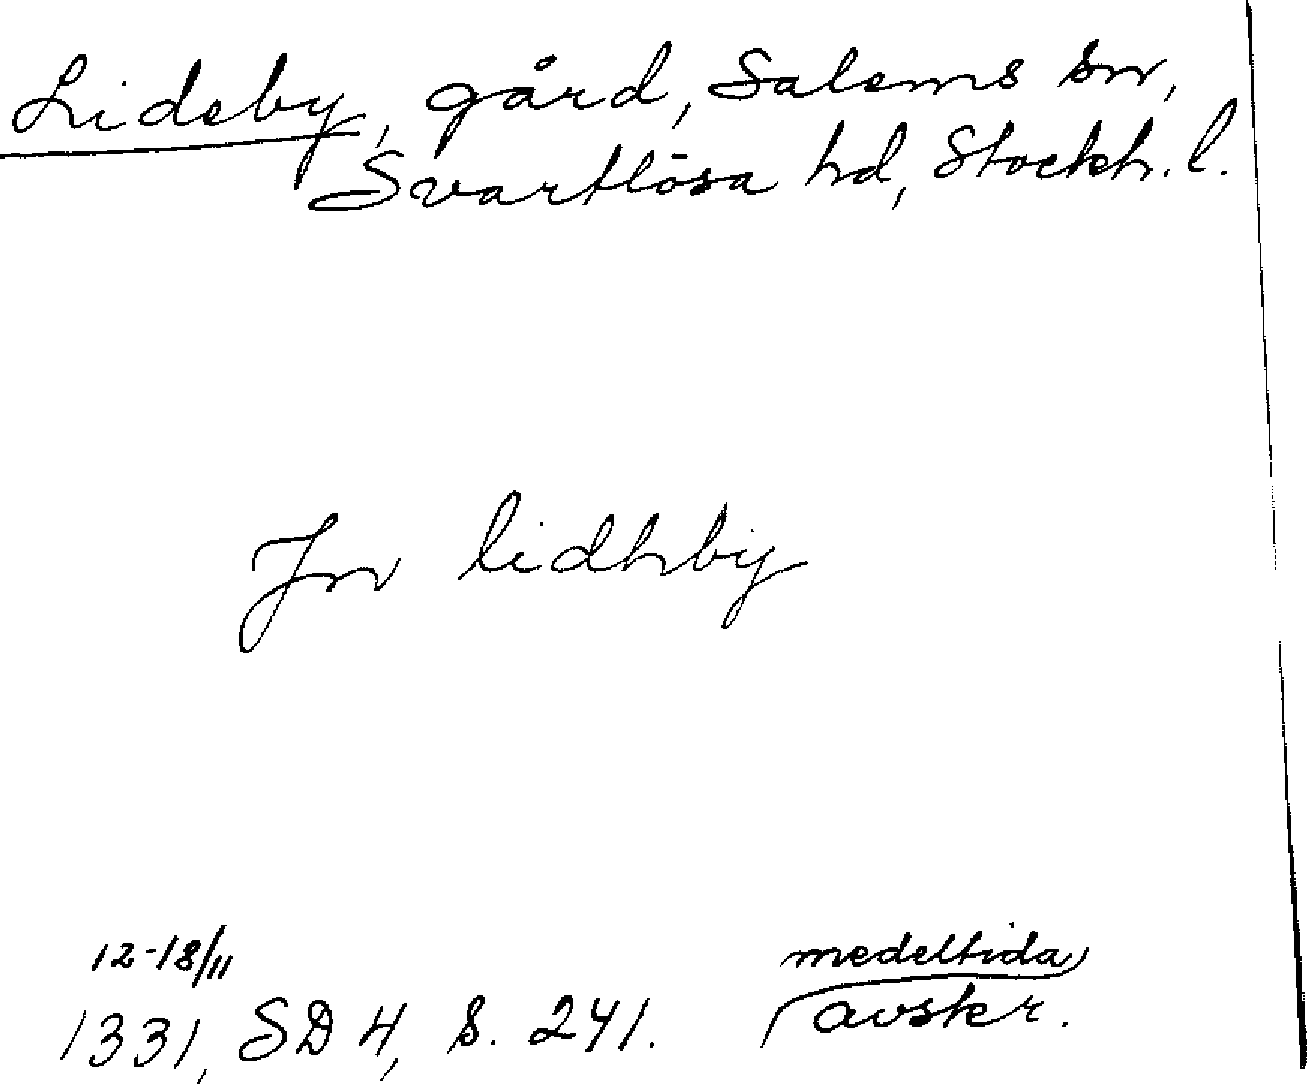 Lideby, gård, Salems sn,
Svartlösa hd, Stockh. l.
Jn lidhby
12-18/11
medeltida
1331, SD 4, s. 241. avskr.